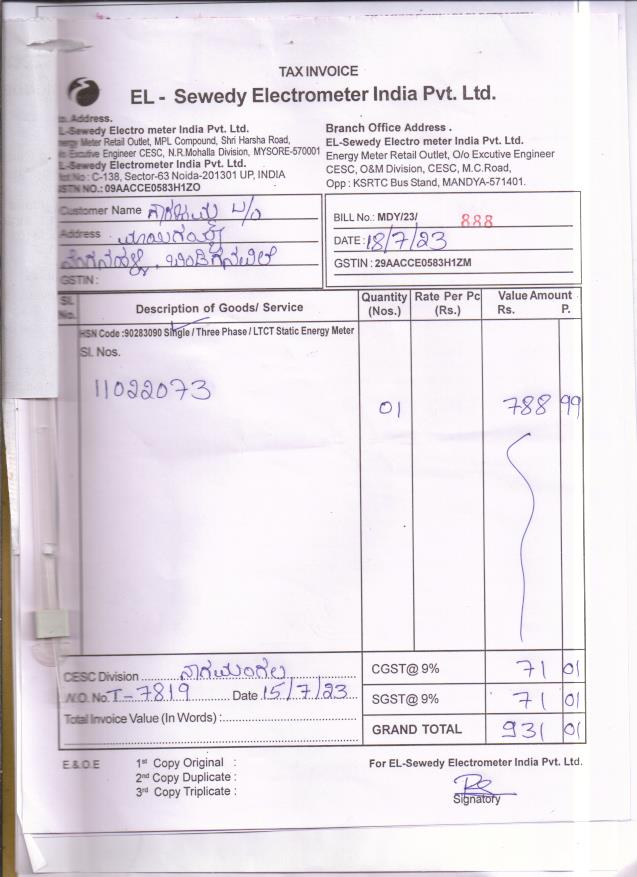 TAX INVOICE
EL - Sewedy Electrometer India Pvt. Ltd.
Address.
L-Sewedy Electro meter India Pvt. Ltd.
Meter Retail Outlet, MPL Compound, Shri Harsha Road,
Excutive Engineer CESC, N.R.Mohalla Division, MYSORE-570001
L-Sewedy Electrometer India Pvt. Ltd.
No : C-138, Sector-63 Noida-201301 UP, INDIA
GSTN NO.: 09AACCE0583H1ZO
Branch Office Address .
EL-Sewedy Electro meter India Pvt. Ltd.
Energy Meter Retail Outlet, O/o Excutive Engineer
CESC, O&M Division, CESC, M.C.Road,
Opp : KSRTC Bus Stand, MANDYA-571401.
Customer Name
Address
GSTIN :
BILL No.: MDY/23/ 888
DATE : 18/7/23
GSTIN : 29AACCE0583H1ZM
Sl. No. Description of Goods/ Service Quantity (Nos.) Rate Per Pc (Rs.) Value Amount Rs. P.
HSN Code :90283090 Single / Three Phase / LTCT Static Energy Meter
Sl. Nos.
11022073 01 788 99
CESC Division ನಾಗಮಂಗಲ CGST@ 9% 71 01
W.O. No. T-7819 Date 15/7/23 SGST@ 9% 71 01
Total Invoice Value (In Words) : GRAND TOTAL 931 01
E.& O.E 1st Copy Original : For EL-Sewedy Electrometer India Pvt. Ltd.
2nd Copy Duplicate :
3rd Copy Triplicate :
Signatory